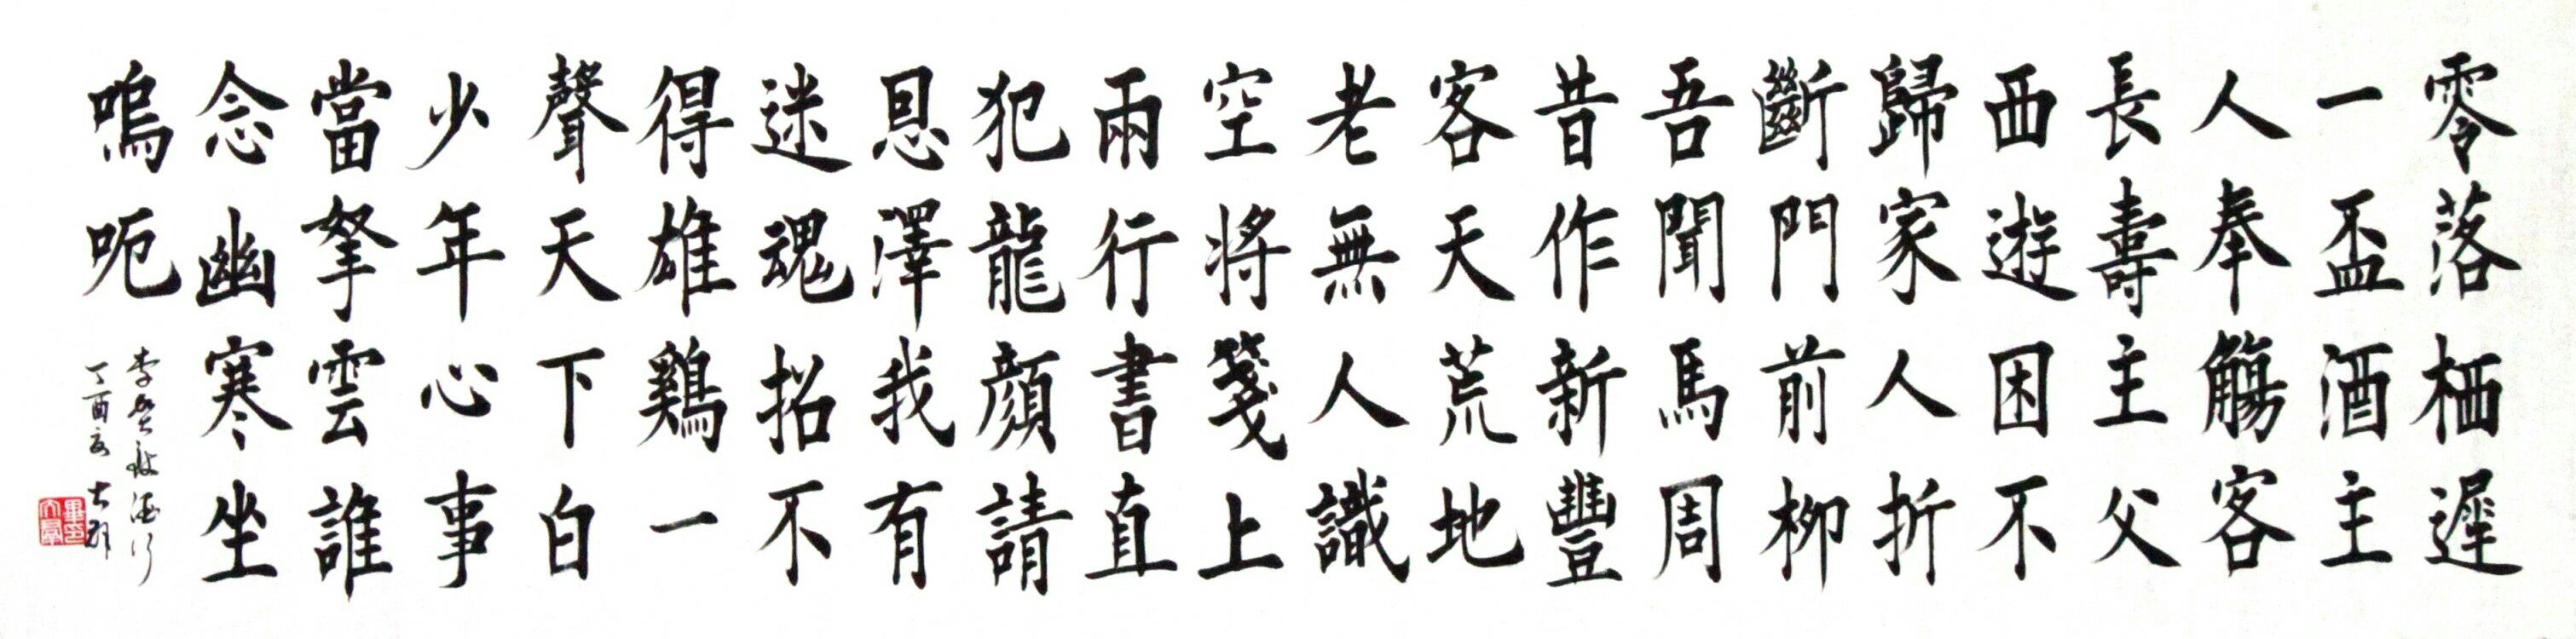 零落栖遲
一盃酒主
人奉觴客
長壽主父
西遊困不
歸家人折
斷門前柳
吾聞馬周
昔作新豐
客天荒地
老無人識
空将箋上
兩行書直
犯龍顔請
恩澤我有
迷魂招不
得雄鷄一
聲天下白
少年心事
當拏雲誰
念幽寒坐
嗚呃
李賀致酒行
丁酉夏 大群